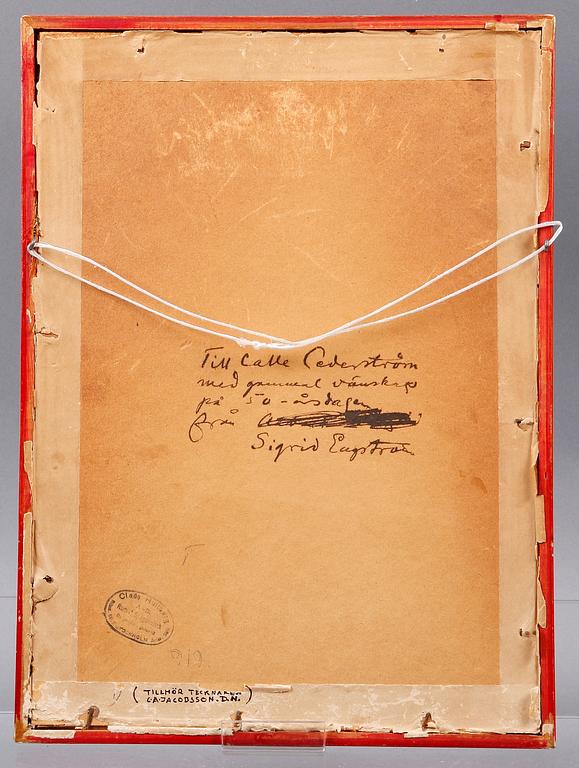 Till Calle Cederström
med gammal vänskap
på 50-årsdagen
från
Sigrid Engström
STOCKHOLM
919
( TILLHÖR TECKNAREN )
C.A. JACOBSSON. D.N.